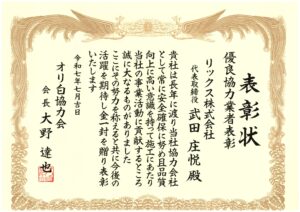 表彰状
優良協力業者表彰
リックス株式会社
代表取締役 武田 庄悦 殿
貴社は長年に渡り当社協力会社
として常に安全確保に努め且品質
向上に高い意識を持って施工にあたり
当社の事業活動に貢献するところ
誠に大なるものがありました
ここにその努力を称えると共に今後の
活躍を期待し金一封を贈り表彰
いたします
令和七年七月吉日
オリ白協力会
会長 大野 達也